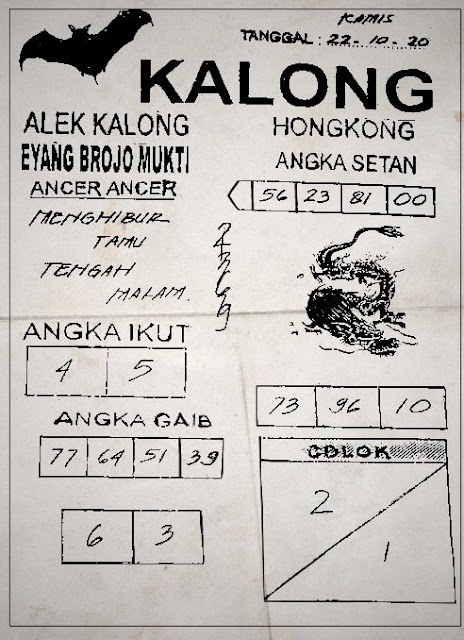 KAMIS
TANGGAL : 22-10-20
KALONG
ALEK KALONG
EYANG BROJO MUKTI
ANCER ANCER
MENGHIBUR
TAMU
TENGAH
MALAM.
HONGKONG
ANGKA SETAN
56 23 81 00
ANGKA IKUT
4 5
ANGKA GAIB
77 64 51 39
6 3
73 96 10
COLOK
2
1